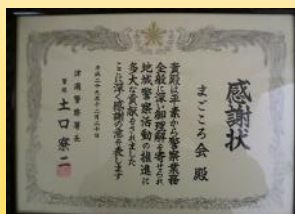 感謝状
まごころ会 殿
貴殿は平素から警察業務
全般に深い御理解を寄せられ
地域警察活動の推進に
多大な貢献をされました
ここに深く感謝の意を表します
平成二十九年十二月二十日
警察署長
警視 土口